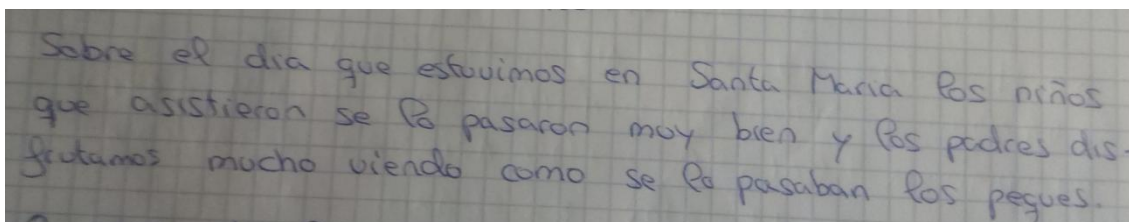 Sobre el dia que estuvimos en Santa Maria los niños
que asistieron se lo pasaron muy bien y los padres dis-
frutamos mucho viendo como se lo pasaban los peques.